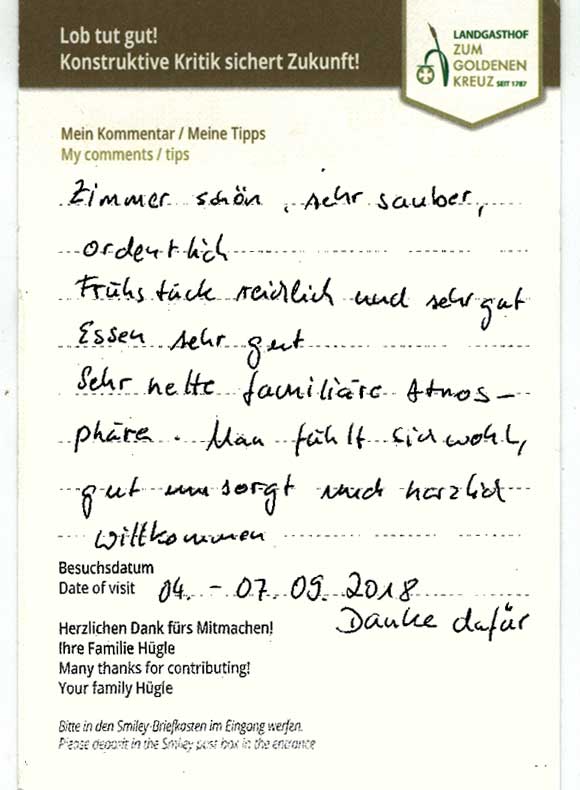 Lob tut gut!
Konstruktive Kritik sichert Zukunft!
LANDGASTHOF
ZUM
GOLDENEN
KREUZ SEIT 1787
Mein Kommentar / Meine Tipps
My comments / tips
Zimmer schön, sehr sauber,
ordentlich
Frühstück reichlich und sehr gut
Essen sehr gut
Sehr nette familiäre Atmos-
phäre. Man fühlt sich wohl,
gut umsorgt und herzlich
willkommen
Besuchsdatum
Date of visit 04. - 07. 09. 2018
Danke dafür
Herzlichen Dank fürs Mitmachen!
Ihre Familie Hügle
Many thanks for contributing!
Your family Hügle
Bitte in den Smiley-Briefkasten im Eingang werfen.
Please deposit in the Smiley post box in the entrance